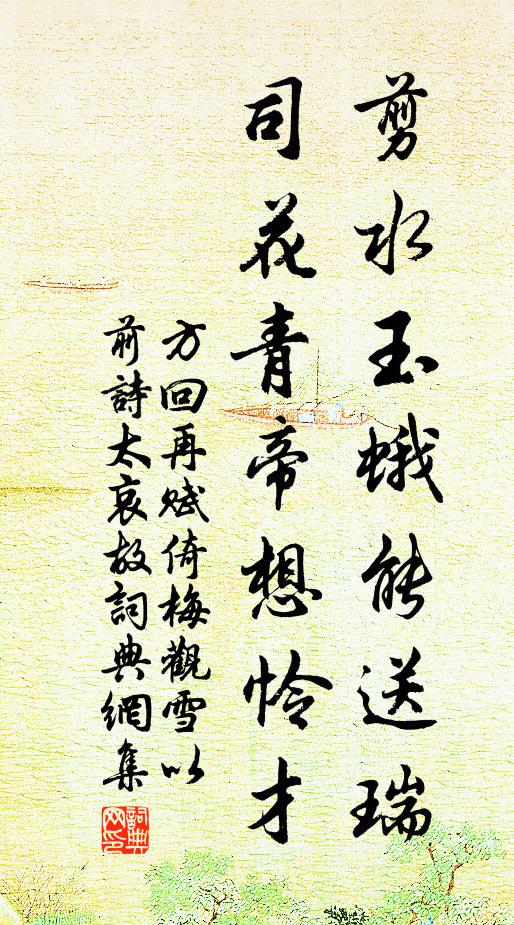 剪水玉蛾能送瑞
司花青帝想怜才
方回再赋倚梅觀雪以
前詩太哀故詞典網集
詞典網印